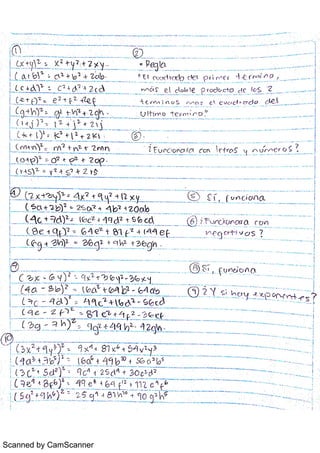 ①
(x+y)² = x²+y²+2xy.
(a+b)² = a²+b²+2ab.
(c+d)² = c²+d²+2cd
(e+f)² = e²+f²+2ef
(g+h)² = g²+h²+2gh.
(i+j)² = i²+j²+2ij
(k+l)² = k²+l²+2kl
(m+n)² = m²+n²+2mn
(o+p)² = o²+p²+2op.
(r+s)² = r²+s²+2rs
②
• Regla
"El cuadrado del primer término,
más el doble producto de los 2
términos mas el cuadrado del
ultimo termino."
③.
¿Funcionara con letras y números?
④ (2x+3y)² = 4x²+9y²+12xy
(5a+2b)² = 25a²+4b²+20ab
(4c+7d)² = 16c²+49d²+56cd
(8e+9f)² = 64e²+81f²+144ef
(6g+3h)² = 36g²+9h²+36gh.
⑤ Sí, funciona
⑥ ¿Funcionara con
negativos?
(3x-6y)² = 9x²+36y²-36xy
(4a-8b)² = 16a²+64b²-64ab
(7c-4d)² = 49c²+16d²-56cd
(9e-2f)² = 81e²+4f²-36ef
(3g-7h)² = 9g²+49h²-42gh.
⑧ Sí, funciona
⑨ ¿Y si hay exponentes?
⑩
(3x²+9y³)² = 9x⁴+81y⁶+54x²y³